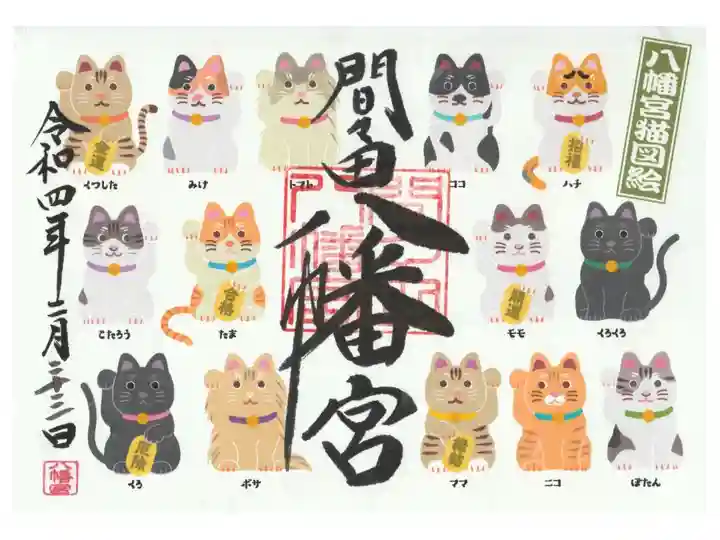 八幡宮猫図絵
間々田八幡宮
令和四年二月二十三日
金運
招福
くつした
みけ
トマト
ココ
ハチ
合格
開運
こたろう
たま
モモ
くろくろ
厄除
くろ
ボサ
ママ
ニコ
ぼたん
八幡宮